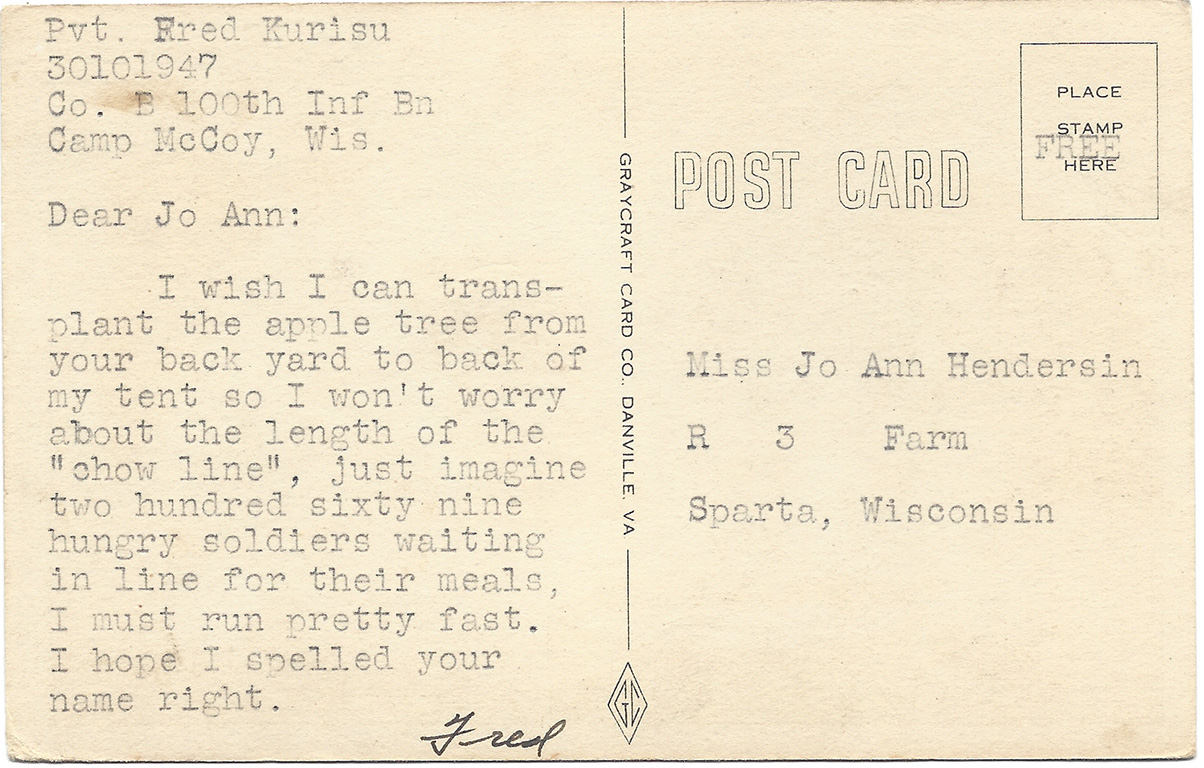 Pvt. Fred Kurisu
30101947
Co. B 100th Inf Bn
Camp McCoy, Wis.
Dear Jo Ann:
I wish I can trans-
plant the apple tree from
your back yard to back of
my tent so I won't worry
about the length of the
"chow line", just imagine
two hundred sixty nine
hungry soldiers waiting
in line for their meals,
I must run pretty fast.
I hope I spelled your
name right.
Fred
GRAYCRAFT CARD CO., DANVILLE, VA
POST CARD
PLACE
STAMP
FREE
HERE
Miss Jo Ann Hendersin
R 3 Farm
Sparta, Wisconsin